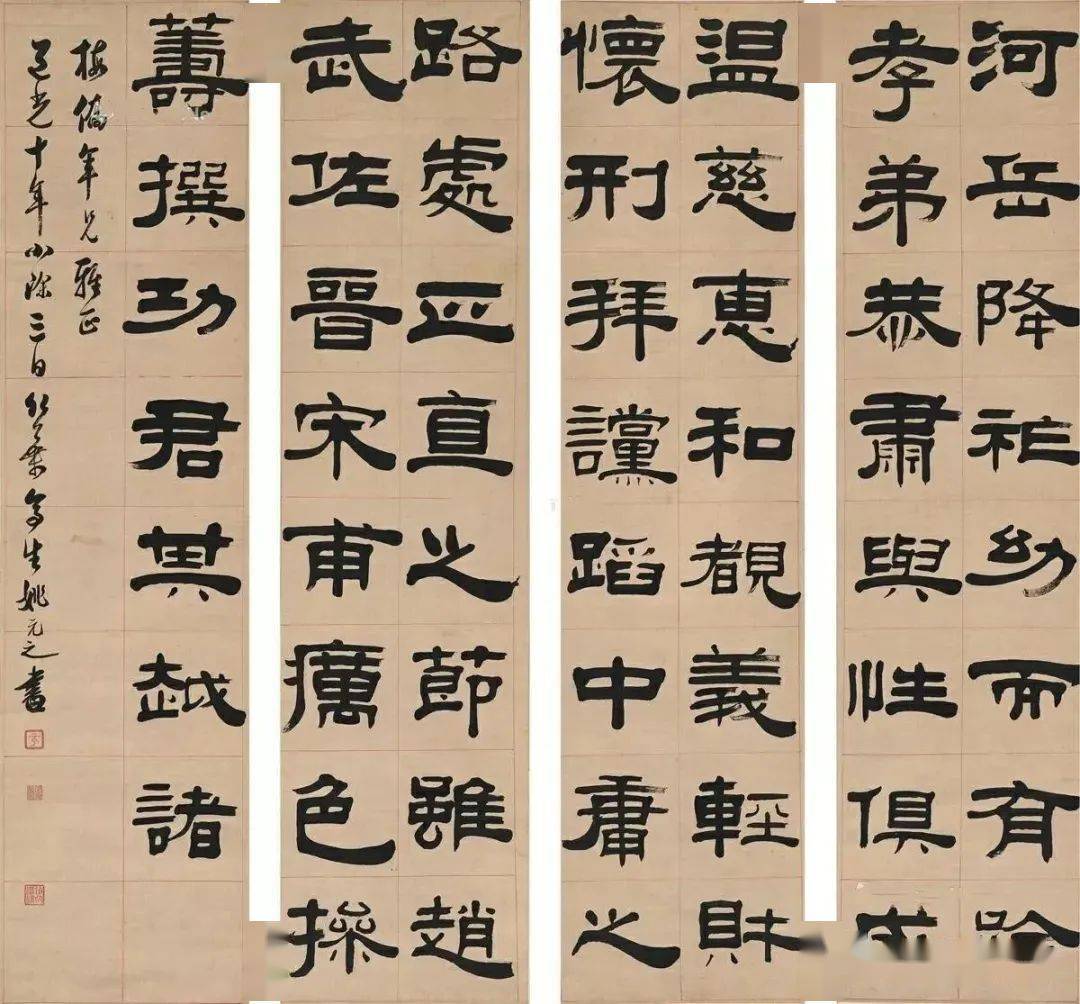 河岳降祉幼而有
孝弟恭肅與性俱成
温慈惠和覩義輕財
懷刑拜讜蹈中庸之
路處正直之節雖趙
武佐晉宋甫厲色操
蕚撰功君其越諸
梅僑年兄雅正
道光十年小除三日
生姚元之書